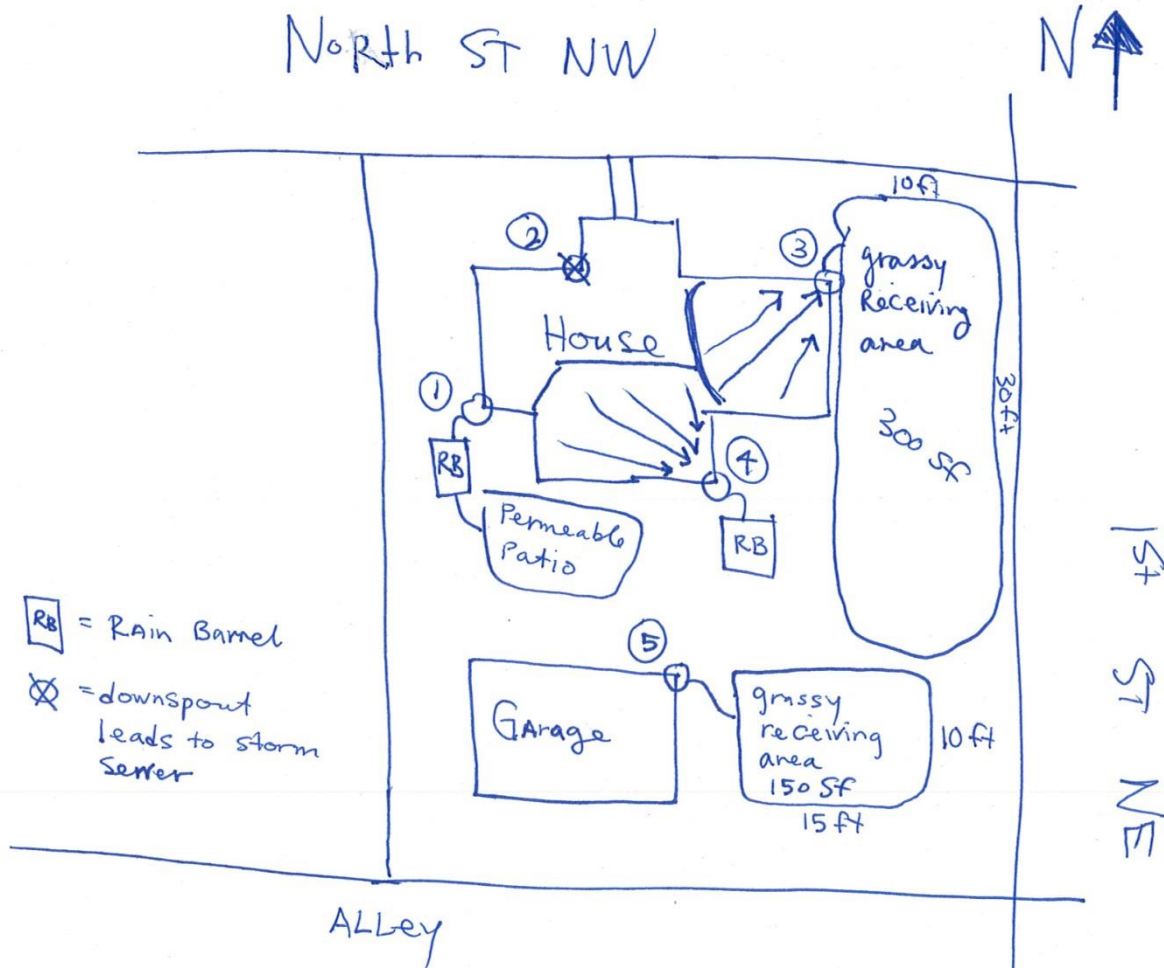 North ST NW
N
10ft
②
③
grassy
Receiving
area
House
30ft
①
300 sf
RB
④
Permeable
Patio
RB
1st ST NE
RB = Rain Barrel
⑤
= downspout
leads to storm
sewer
Garage
grassy
receiving
area
150 SF
10ft
15ft
ALLey